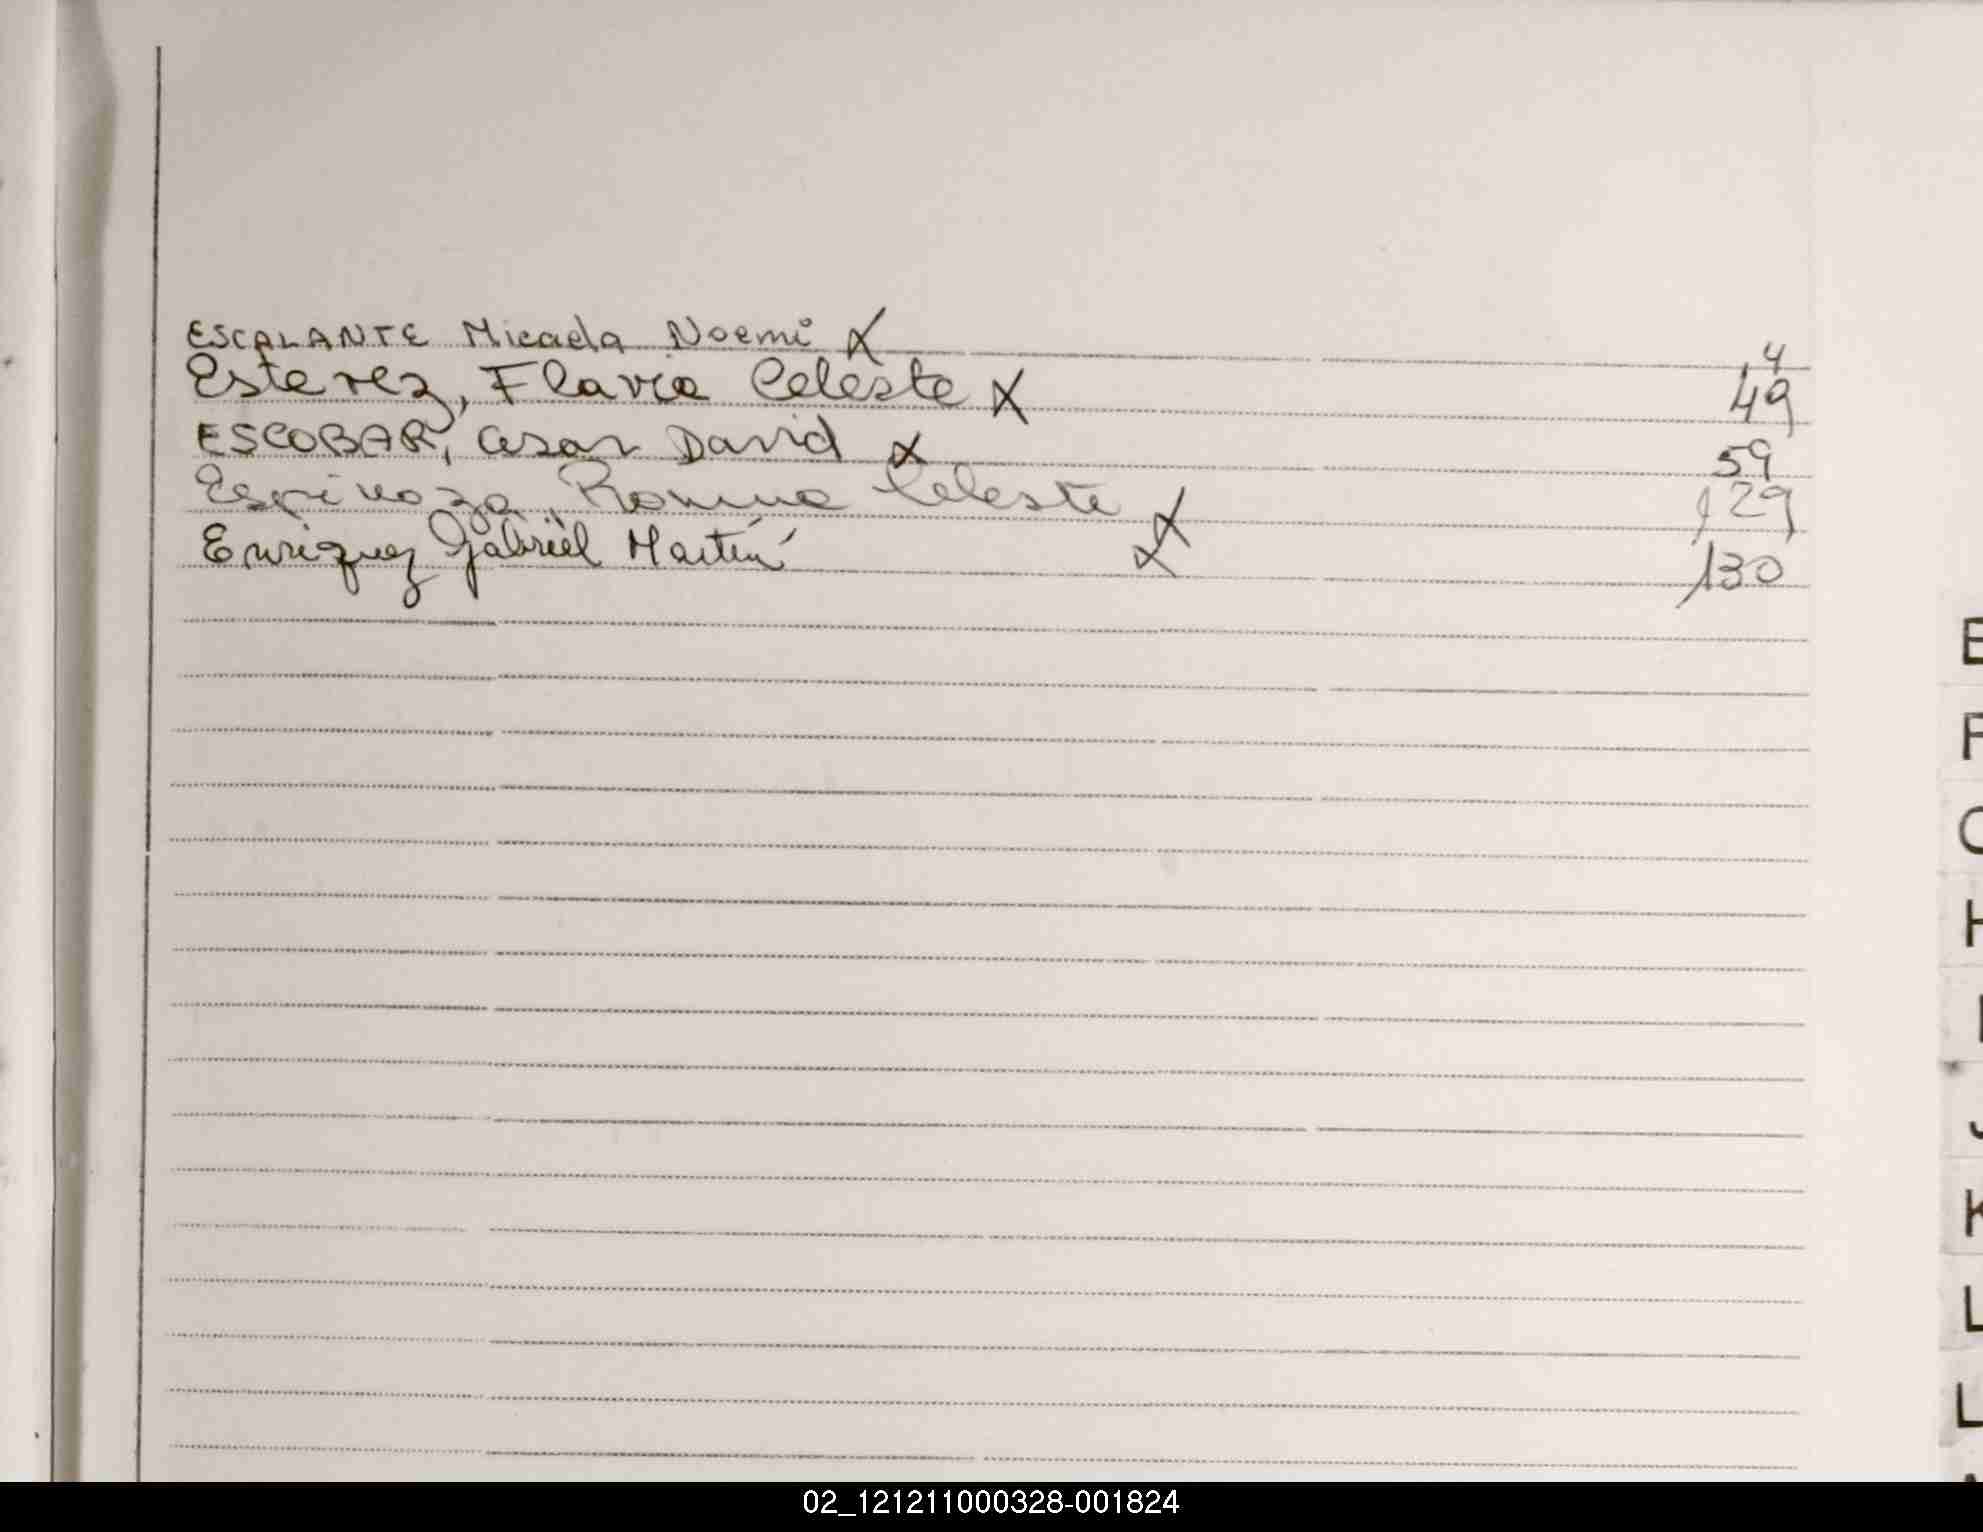 ESCALANTE Micaela Noemi X 4
Esterez, Flavia Celeste X 49
ESCOBAR, Cesar David X 59
Espinoza, Romina Celeste X 129
Enriquez Gabriel Martín X 130
E
F
G
H
I
J
K
L
L
02_121211000328-001824